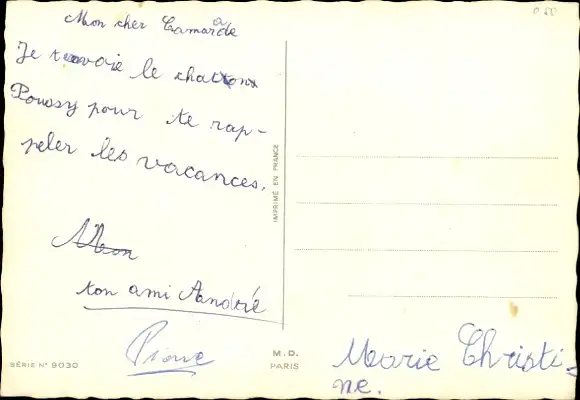 Mon cher Camarade
Je t'envoie le chaton
Poussy pour te rap-
peler les vacances.
Mon
ton ami André
Pierre
IMPRIMÉ EN FRANCE
SÉRIE N° 9030
M.D.
PARIS
Marie Christi-
ne.